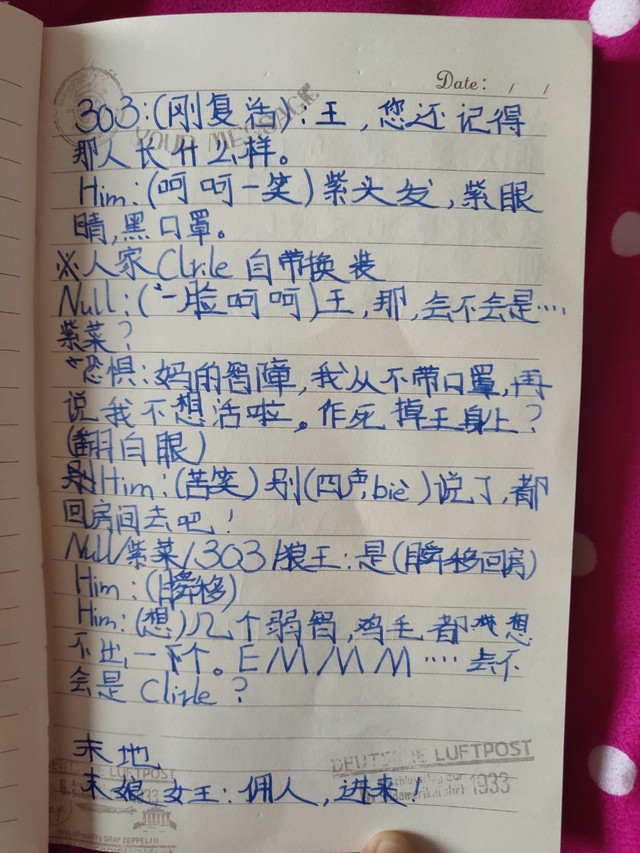 Date: / /
303:(刚复活):王,您还记得
YOUR MESSAGE
那人长什么样。
Him:(呵呵一笑)紫头发,紫眼
睛,黑口罩。
※人家Clrle自带换装
Null:(一脸呵呵)王,那,会不会是····
紫菜?
恐惧:妈的智障,我从不带口罩,再
说我不想活啦。作死掉王身上?
(翻白眼)
Him:(苦笑)别(四声,biè)说了,都
回房间去吧!
Null/紫菜/303/狼王:是(瞬移回房)
Him:(瞬移)
Him:(想)几个弱智,鸡毛都 想
不出一下个。EMMM····去不
会是Clrle?
末地
DEUTSCHE LUFTPOST
1933
末娘女王:佣人,进来!